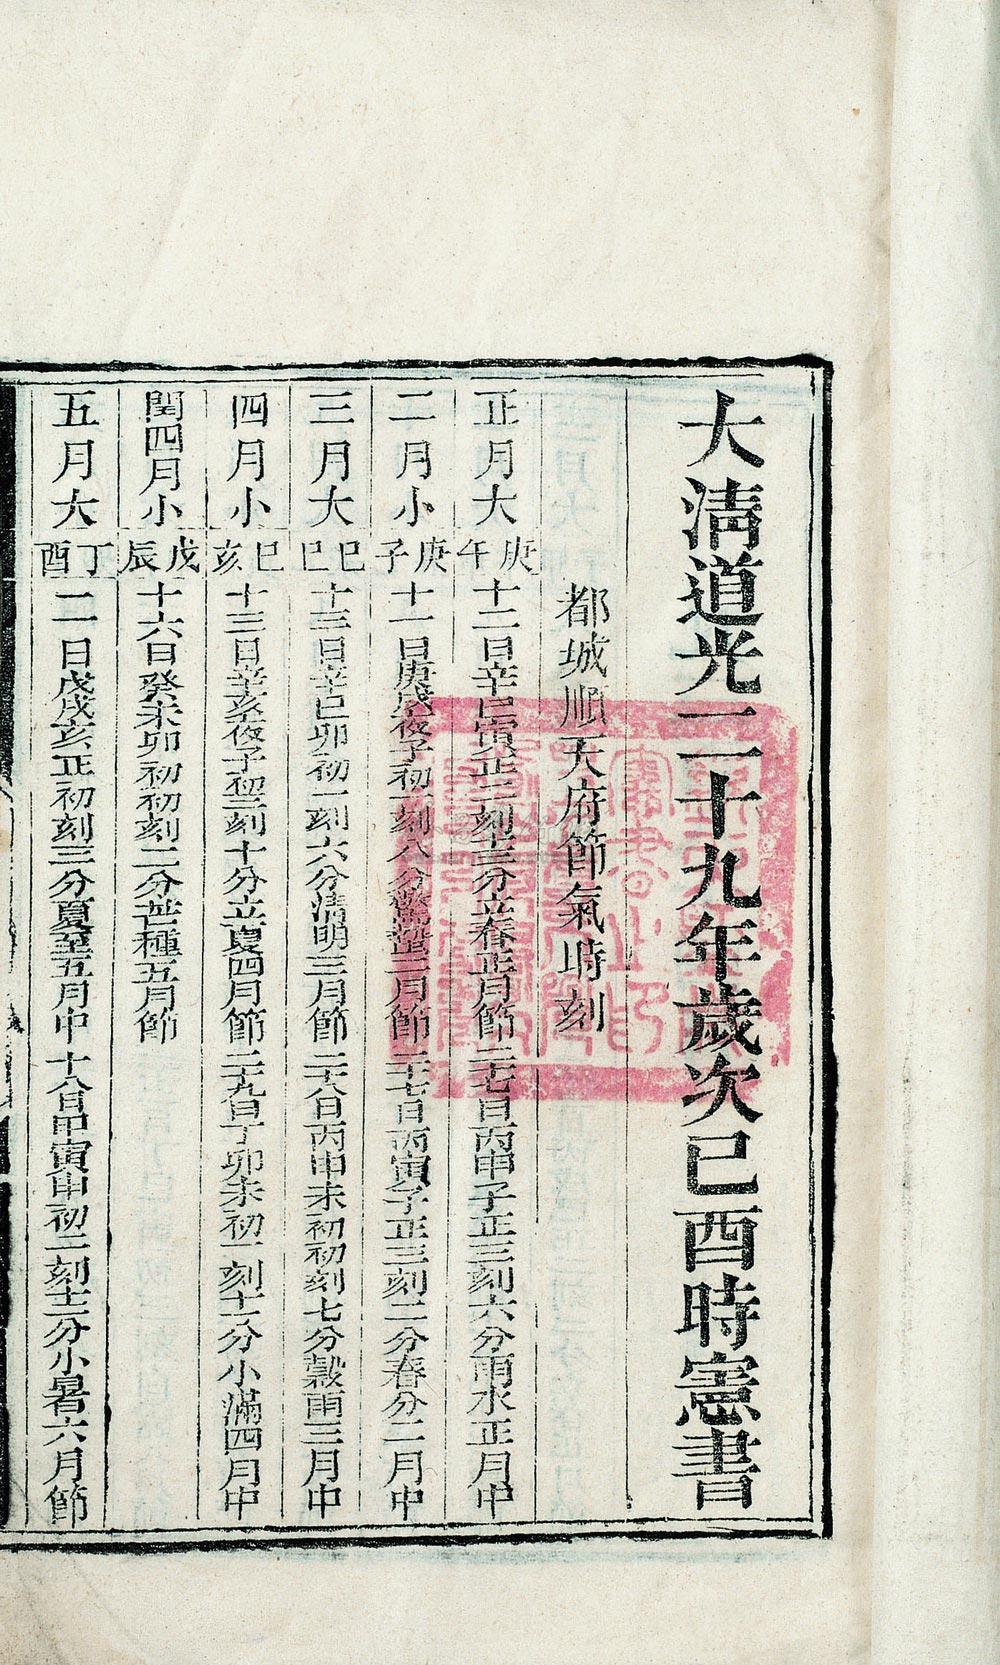 大清道光二十九年歲次己酉時憲書
都城順天府節氣時刻
正月大 庚午 十二日辛巳寅正二刻十三分立春正月節 二十七日丙申子正三刻六分雨水正月中
二月小 庚子 十一日庚戌夜子初一刻八分驚蟄二月節 二十七日丙寅子正三刻二分春分二月中
三月大 己巳 十三日辛巳卯初一刻六分清明三月節 二十八日丙申未初初刻七分穀雨三月中
四月小 己亥 十三日辛亥夜子初三刻十分立夏四月節 二十九日丁卯未初一刻十一分小滿四月中
閏四月小 戊辰 十六日癸未卯初初刻二分芒種五月節
五月大 丁酉 二日戊戌亥正初刻三分夏至五月中 十八日甲寅申初二刻十二分小暑六月節